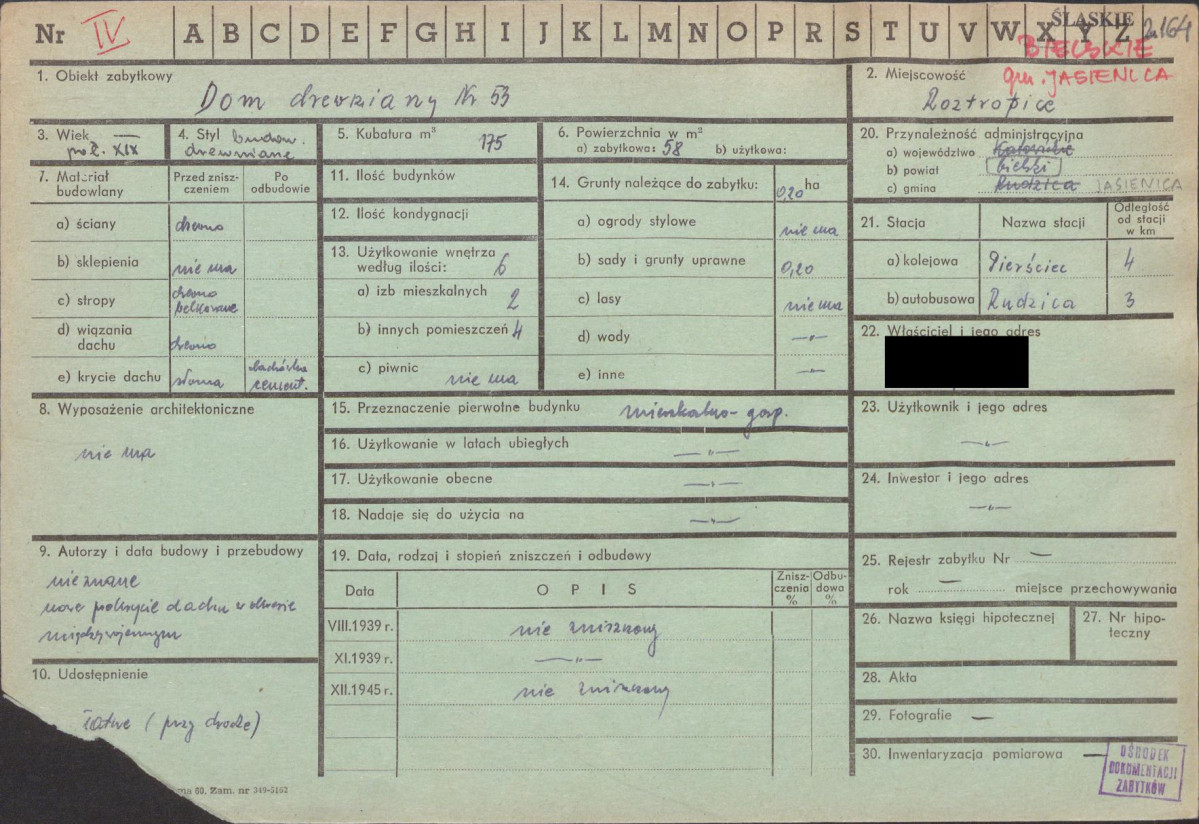 Nr IV A B C D E F G H I J K L M N O P R S T U V W X Y Z
ŚLĄSKIE
BIELSKIE
gm. JASIENICA
1. Obiekt zabytkowy
Dom drewniany Nr 53
2. Miejscowość
Roztropice
3. Wiek —
poł. XIX
4. Styl budow.
drewniane
5. Kubatura m³
175
6. Powierzchnia w m²
a) zabytkowa: 58 b) użytkowa:
7. Materiał budowlany
Przed zniszczeniem
Po odbudowie
a) ściany drewno
b) sklepienia nie ma
c) stropy drewno
belkowane
d) wiązania dachu drewno
e) krycie dachu słoma dachówka
cement.
8. Wyposażenie architektoniczne
nie ma
9. Autorzy i data budowy i przebudowy
nieznane
nowe pokrycie dachu w okresie
międzywojennym
10. Udostępnienie
łatwe (przy drodze)
60. Zam. nr 349-5162
11. Ilość budynków
12. Ilość kondygnacji
13. Użytkowanie wnętrza
według ilości: 6
a) izb mieszkalnych 2
b) innych pomieszczeń 4
c) piwnic nie ma
14. Grunty należące do zabytku: 0,20 ha
a) ogrody stylowe nie ma
b) sady i grunty uprawne 0,20
c) lasy nie ma
d) wody —„—
e) inne —„—
15. Przeznaczenie pierwotne budynku mieszkalno-gosp.
16. Użytkowanie w latach ubiegłych —„—
17. Użytkowanie obecne —„—
18. Nadaje się do użycia na —„—
19. Data, rodzaj i stopień zniszczeń i odbudowy
Data OPIS Zniszczenia % Odbudowa %
VIII.1939 r. nie zniszczony
XI.1939 r. —„—
XII.1945 r. nie zniszczony
20. Przynależność administracyjna
a) województwo Katowice
b) powiat bielski
c) gmina Rudzica JASIENICA
21. Stacja Nazwa stacji Odległość od stacji w km
a) kolejowa Pierściec 4
b) autobusowa Rudzica 3
22. Właściciel i jego adres
23. Użytkownik i jego adres
—„—
24. Inwestor i jego adres
—„—
25. Rejestr zabytku Nr —
rok — miejsce przechowywania
26. Nazwa księgi hipotecznej
27. Nr hipoteczny
28. Akta
29. Fotografie —
30. Inwentaryzacja pomiarowa —
OŚRODEK
DOKUMENTACJI
ZABYTKÓW